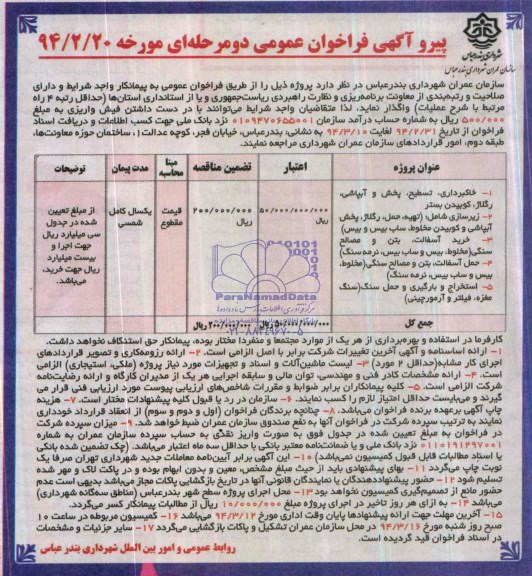 پیرو آگهی فراخوان عمومی دومرحله‌ای مورخه ۹۴/۲/۲۰
شهرداری بندرعباس
سازمان عمران شهرداری بندرعباس
سازمان عمران شهرداری بندرعباس در نظر دارد پروژه ذیل را از طریق فراخوان عمومی به پیمانکار واجد شرایط و دارای
صلاحیت و رتبه‌بندی از معاونت برنامه‌ریزی و نظارت راهبردی ریاست‌جمهوری و یا از استانداری استان‌ها (حداقل رتبه ۴ راه
مرتبط با شرح عملیات) واگذار نماید، لذا متقاضیان واجد شرایط می‌توانند با در دست داشتن فیش واریزی به مبلغ
۵۰۰/۰۰۰ ریال به شماره حساب درآمد سازمان ۰۱۰۹۴۷۰۶۵۵۰۰۱ نزد بانک ملی جهت کسب اطلاعات و دریافت اسناد
فراخوان از تاریخ ۹۴/۲/۳۱ لغایت ۹۴/۳/۱۰ به نشانی: بندرعباس، خیابان فجر، کوچه عدالت ۱، ساختمان حوزه معاونت‌ها،
طبقه دوم، امور قراردادهای سازمان عمران شهرداری مراجعه نمایند.
عنوان پروژه | اعتبار | تضمین مناقصه | مبنا محاسبه | مدت پیمان | توضیحات
۱- خاکبرداری، تسطیح، پخش و آبپاشی،
رگلاژ، کوبیدن بستر
۲- زیرسازی شامل: (تهیه، حمل، رگلاژ، پخش
آبپاشی و کوبیدن مخلوط، ساب بیس و بیس)
۳- خرید آسفالت، بتن و مصالح
سنگی(مخلوط، بیس و ساب بیس، نرمه سنگ)
۴- حمل آسفالت، بتن و مصالح سنگی(مخلوط،
بیس و ساب بیس، نرمه سنگ)
۵- استخراج و بارگیری و حمل سنگ(سنگ
مغزه، فیلتر و آرمورچینی)
۵۰/۰۰۰/۰۰۰/۰۰۰
ریال
۲۰۰/۰۰۰/۰۰۰
ریال
قیمت
مقطوع
یکسال کامل
شمسی
از مبلغ تعیین
شده در جدول
سی میلیارد ریال
جهت اجرا و
بیست میلیارد
ریال جهت خرید،
می‌باشد.
جمع کل | ۵۰/۰۰۰/۰۰۰/۰۰۰ ریال | ۲۰۰/۰۰۰/۰۰۰ ریال
ParsNamadData
کارفرما در استفاده و بهره‌برداری از هر یک از موارد مجتمعا و منفردا مختار بوده، پیمانکار حق استنکاف نخواهد داشت.
۱- ارائه اساسنامه و آگهی آخرین تغییرات شرکت برابر با اصل الزامی است. ۲- ارائه رزومه‌کاری و تصویر قراردادهای
اجرای کار مشابه(حداقل ۲ مورد) ۳- لیست ماشین‌آلات و اسناد و تجهیزات مورد نیاز پروژه (ملکی، استیجاری) الزامی
است. ۴- ارائه مشخصات کادر فنی و مهندسی، توان مالی و سابقه اجرایی هر یک از مدیران کارگاه و ارائه رضایت‌نامه
شرکت الزامی است. ۵- کلیه پیمانکاران برابر ضوابط و مقررات شاخص‌های ارزیابی پیوست مورد ارزیابی قرار می
گیرند و می‌بایست حداقل امتیاز لازم را کسب نمایند. ۶- سازمان در رد یا قبول کلیه پیشنهادات مختار است. ۷- هزینه
چاپ آگهی برعهده برنده فراخوان می‌باشد. ۸- چنانچه برندگان فراخوان (اول و دوم و سوم) از انعقاد قرارداد خودداری
نمایند به ترتیب سپرده شرکت در فراخوان آنها به نفع صندوق سازمان عمران ضبط خواهد شد. ۹- میزان سپرده شرکت
در فراخوان به مبلغ تعیین شده در جدول فوق به صورت واریز نقدی به حساب سپرده سازمان عمران به شماره
۰۱۱۰۱۹۱۲۹۷۰۰۱ نزد بانک ملی و یا ضمانت‌نامه معتبر بانکی با حداقل سه ماه اعتبار می‌باشد. (چک تضمین شده بانکی
یا اسناد مطالبات قابل قبول کمیسیون نمی‌باشد) ۱۰- این آگهی برابر آیین‌نامه معاملات جدید شهرداری تهران صرفا یک
نوبت چاپ می‌گردد ۱۱- بهای پیشنهادی باید از حیث مبلغ مشخص، معین و بدون ابهام بوده و در پاکت لاک و مهر شده
تسلیم شود ۱۲- حضور پیشنهاددهندگان یا نمایندگان قانونی آنها در تاریخ بازگشایی پاکات مجاز می‌باشد بدیهی است عدم
حضور مانع از تصمیم‌گیری کمیسیون نخواهد بود ۱۳- محل اجرای پروژه سطح شهر بندرعباس (مناطق سه‌گانه شهرداری)
می‌باشد ۱۴- به ازای هر روز تاخیر در اجرای پروژه مبلغ ۱۰/۰۰۰/۰۰۰ ریال از مطالبات پیمانکار کسر می‌گردد.
۱۵- آخرین مهلت جهت ارائه پیشنهادها پایان وقت اداری مورخ ۹۴/۳/۱۲ می‌باشد ۱۶- کمیسیون مربوطه در ساعت ۱۰
صبح روز شنبه مورخ ۹۴/۳/۱۶ در محل سازمان عمران تشکیل و پاکات بازگشایی می‌گردد ۱۷- سایر جزئیات و مشخصات
در اسناد فراخوان قید گردیده است.
روابط عمومی و امور بین الملل شهرداری بندر عباس